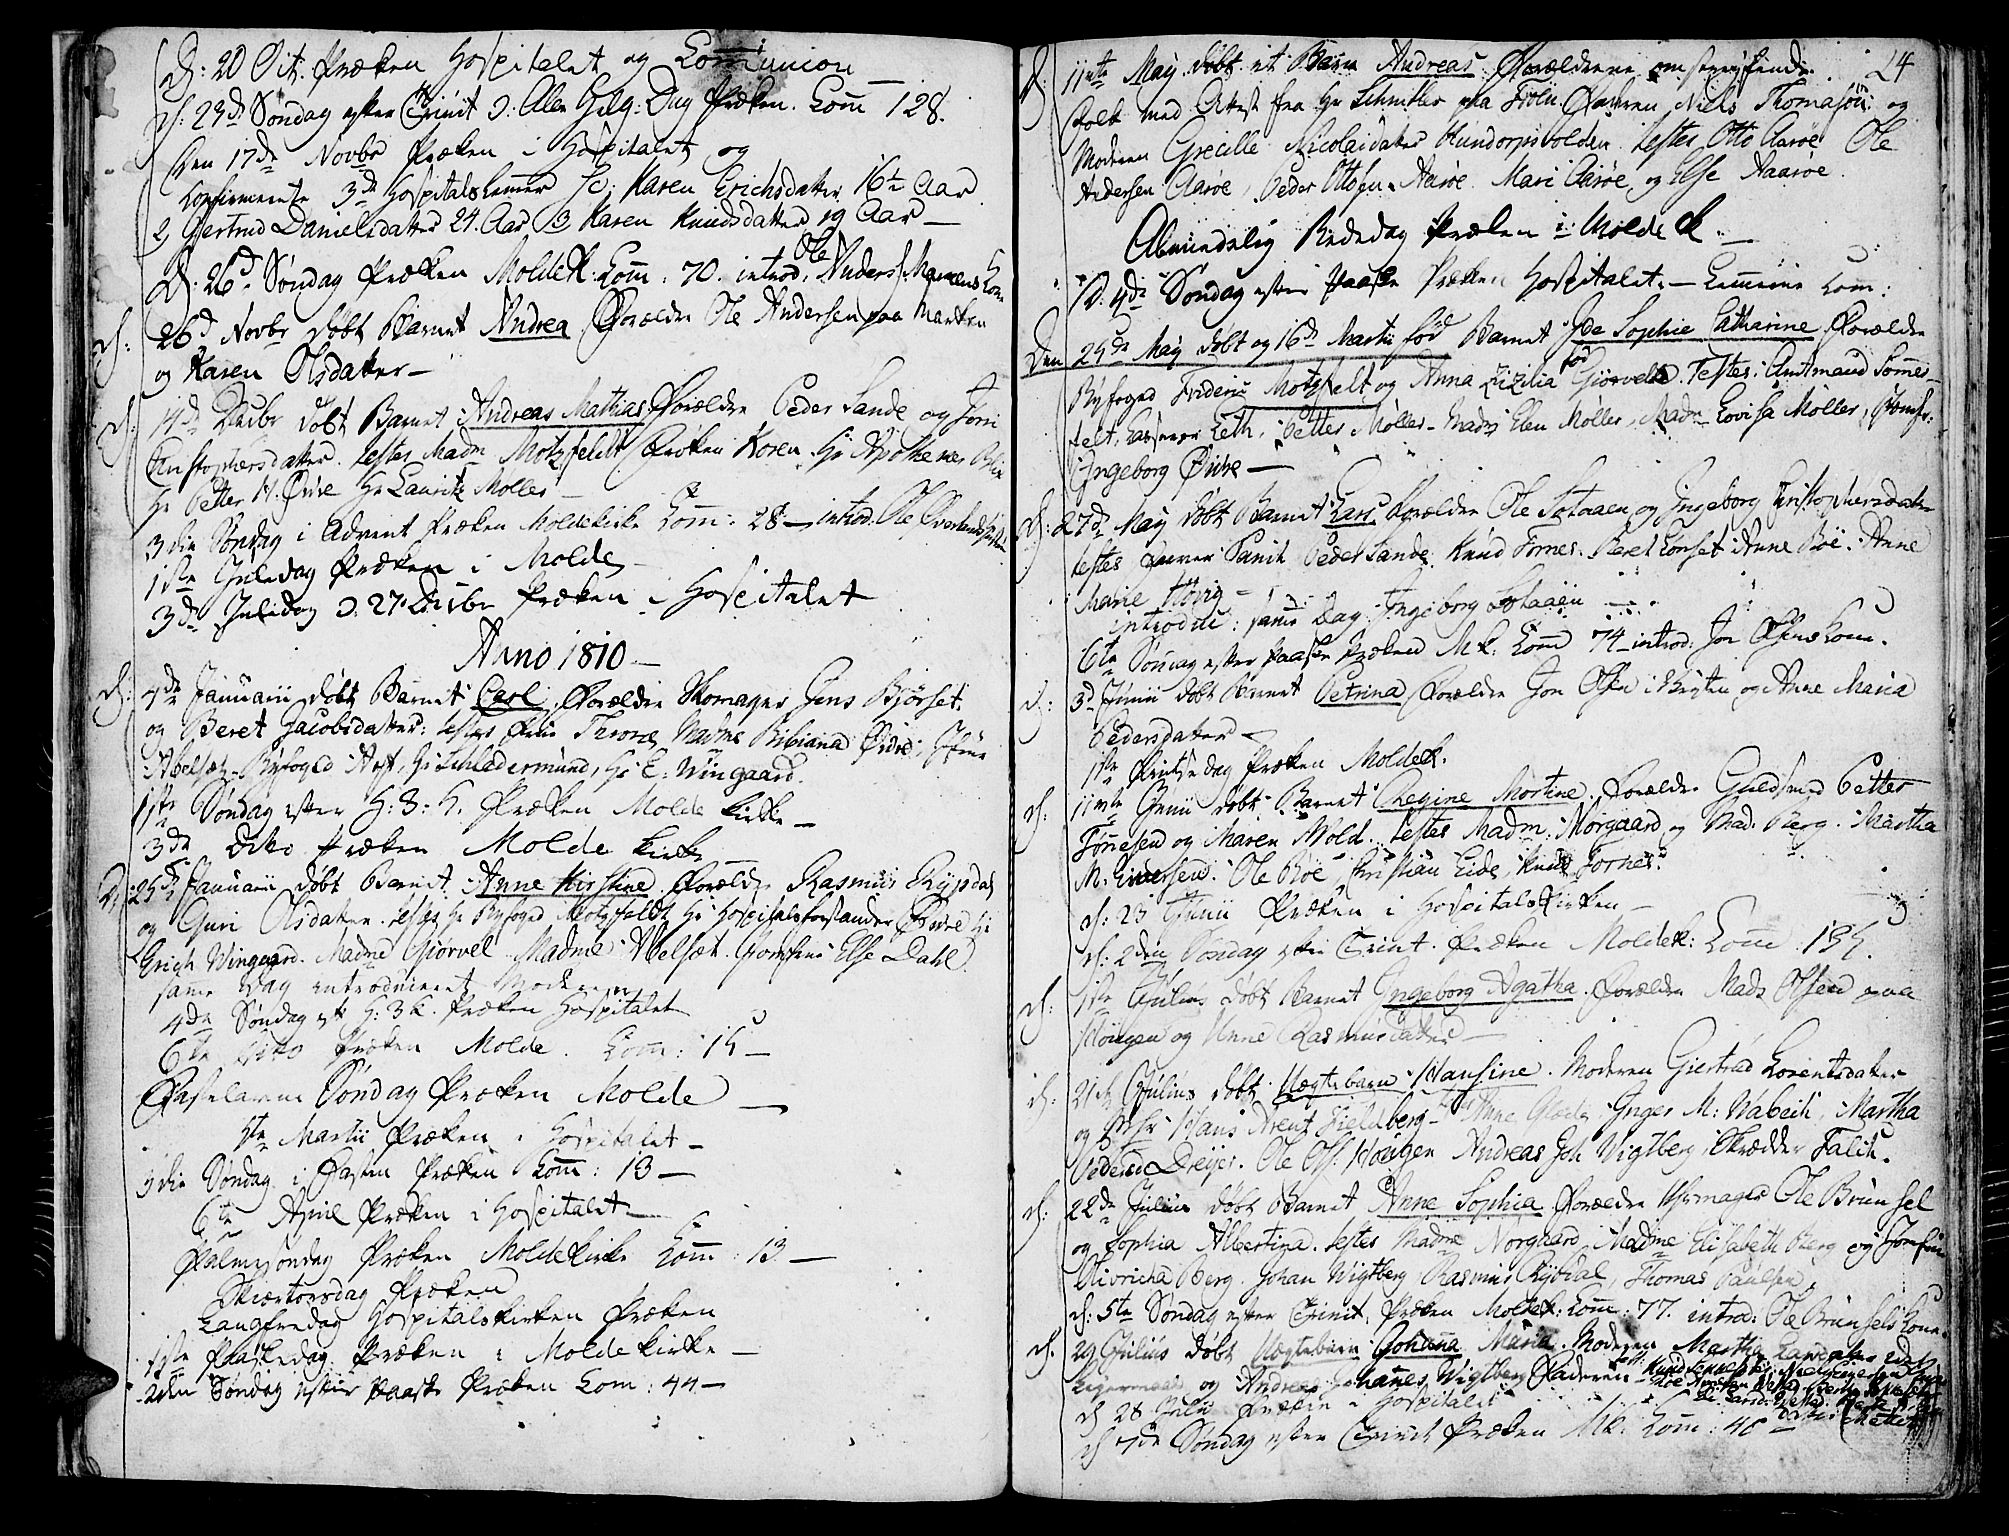 D: 20 Oct. Præken Hospitalet og Communion
D: 23d Søndag efter Trinit D. Alle Helg: Dag Præken. Com̅ 128.
Den 17de Novbr Præken i Hospitalet og
Confirmerte 3de Hospitalslemmer Sc: Karen Erichsdatter 16te Aar
2 Giertrud Danielsdatter 24. Aar 3 Karen Knudsdatter 19 Aar
D. 26d Søndag Præken Molde K. Com̅: 70. introd. Ole Anders: Marcens Kone
D: 26d Novbr døbt Barnet Andrea Forældre Ole Andersen paa Marken
og Karen Olsdatter
D: 14d Decbr døbt Barnet Andreas Mathias Forældre Peder Sande og
Christophersdatter. Testes Madm Motzfeldt Frøken Koren. Hr Apotheker
Hr Petter H. Øwre Hr Lauritz Møller
3die Søndag i Advent Præken Moldekirke Com̅: 28 introd. Ole
1ste Juledag Præken i Molde
3de Juledag D. 27 Decbr Præken i Hospitalet
Anno 1810
D: 4de Januarii døbt Barnet Carl. Forældre Skomager Jens Bjørset
og Beret Jacobsdatter: testes Madme Bibiana Øwre,
Abelset. Byfoged Hr Schledermund, Hr E: Wingaard.
1ste Søndag efter H: 3: K. Præken Molde Kirke
3de Dito Præken Molde Kirke
D: 25de Januarii døbt Barnet Anne Kirstine Forældre Rasmus Rypdal
og Guri Olsdatter. Testes Hr Byfoged Motzfeldt Hr Hospitalsforstander Øwre Hr
Erich Wingaard. Madme Giørvel Madme Abelsæt. Jomfrue Else Dahl.
samme Dag introduceret Moderen
4de Søndag eft H: 3 K. Præken Hospitalet
6te Dito Præken Molde. Com̅: 15
Fastelavns Søndag Præken Molde
1ste Martii Præken i Hospitalet
3die Søndag i Fasten Præken Com̅: 13
6te April Præken i Hospitalet
Palmesøndag Præken Moldekirke Com̅: 13
Skiærtorsdag Præken
Langfredag Hospitalskirken Præken
1ste Paaskedag Præken i Moldekirke
2den Søndag efter Paaske Præken Com: 44
24
D: 11te May døbt et Barn Andreas Forældrene omstreifende
Folk med Attest fra Hr Schnitler paa Faderen Niels Thomasøn og
Moderen Grecille Nicolaidatter Hundorpsvolden. Testes Otto Aarøe Ole
Andersen Aarøe, Peder Ottosen Aarøe. Mari Aarøe, og Else Aarøe
Almindelig Bededag Præken i Molde K.
D: 4de Søndag efter Paaske Præken Hospitalet. Com:
Den 25de May døbt og 16d Martii fød Barnet Ide Sophie Catharine Forældre
Byfoged Frideric Motzfelt og Anna Zizilia fød Giørvell. Testes: Amtmand Sommer-
felt, Leth, Petter Møller. Madm Elen Møller, Madm Lovisa Møller, Jomfr:
Ingeborg Øwre
D: 27d May døbt Barnet Lars Forældre Ole Sotaaen og Ingeborg Christophersdatter
testes Peder Sande. Knud Fornes. Beret Lønset Anne Bøe. Anne
Marie
introduc: samme Dag Ingeborg Sotaaen
6te Søndag efter Paaske Præken MK: Com̅ 74 introd: Jon Olsens Kone.
D: 3d Junii døbt Barnet Petrina Forældre Jon Olsen i og Anne Maria
Pedersdatter
1ste Pintsedag Præken Molde K.
D: 11te Junii døbt Barnet Regine Mortine. Forældre Guldsmed Petter
Tønnesen og Maren Wold. Testes Madm. Nørgaard og Mad. Berg. Martha
M. Eiversen. Ole Bøe, Christian Eide, Knud Fornes.
D: 23 Junii Præken i Hospitalskirken
D: 2den Søndag efter Trinit. Præken Molde K: Com̅:
D: 1ste Julius døbt Barnet Ingeborg Agatha. Forældre Mads Olsen paa
Hougen og Anne Rasmusdatter
D: 21de Julius døbt Uægtebarn Hansine. Moderen Giertrud Lorentsdatter
og Fahr Hans Arent Fieldberg Anne Inger M: Wabech, Martha
Peders Dreyer. Ole Ols: Hougen Andreas Joh Wigtberg, Skrædder Falch.
D: 22de Julius døbt Barnet Anne Sophia Forældre Uhrmager Ole Brunsel
og Sophia Albertina. Testes Madme Norgaard, Madme Elisabeth Berg og Jomfru
Divricha Berg. Johan Wigtberg Rasmus Rypdal, Thomas Paulsen,
D: 5te Søndag efter Trinit. Præken Molde K: Com̅: 77. introd: Ole Brunsels Kone
D. 29 Julius Døbt Uægtebarn Johana Maria. Moderen Martha
og Andreas Johannes Wigtberg Faderen
D 28 Julii Præken i Hospitalet
D 7de Søndag efter Trinit Præken MK: Com̅: 40